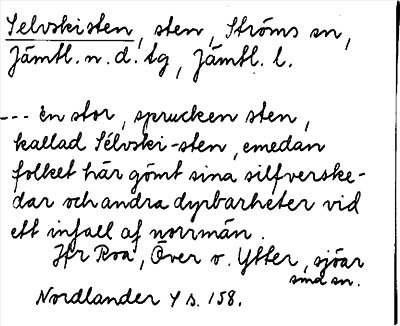 Selvskisten, sten, Ströms sn,
Jämtl. n. d. tg, Jämtl. l.
--- en stor, sprucken sten,
kallad Sélvski-sten, emedan
folket här gömt sina silfverske-
dar och andra dyrbarheter vid
ett infall af norrmän.
Jfr Roa, Över o. Ytter, sjöar
sma sn.
Nordlander Y s. 158.